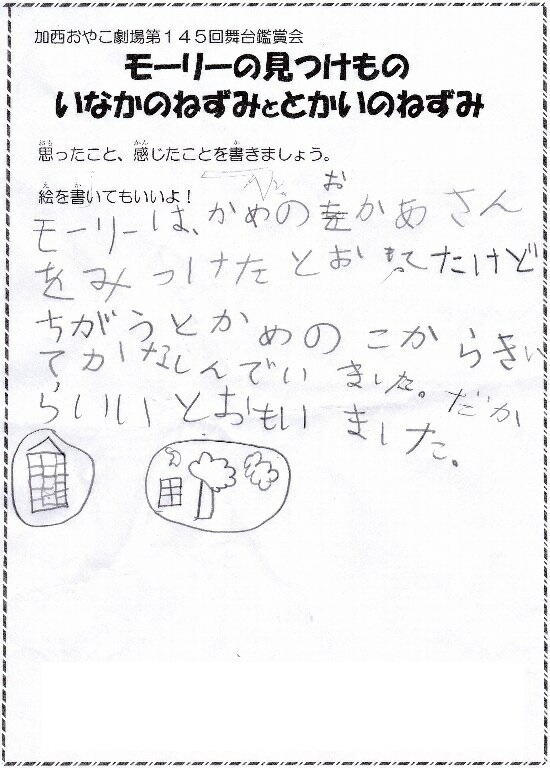 加西おやこ劇場第145回舞台鑑賞会
モーリーの見つけもの
いなかのねずみととかいのねずみ
思ったこと、感じたことを書きましょう。
絵を書いてもいいよ！
モーリーは、かめのおかあさん
をみつけたとおもってたけど
ちがうとかめのこからきい
てかなしんでいました。だか
らいいとおもいました。